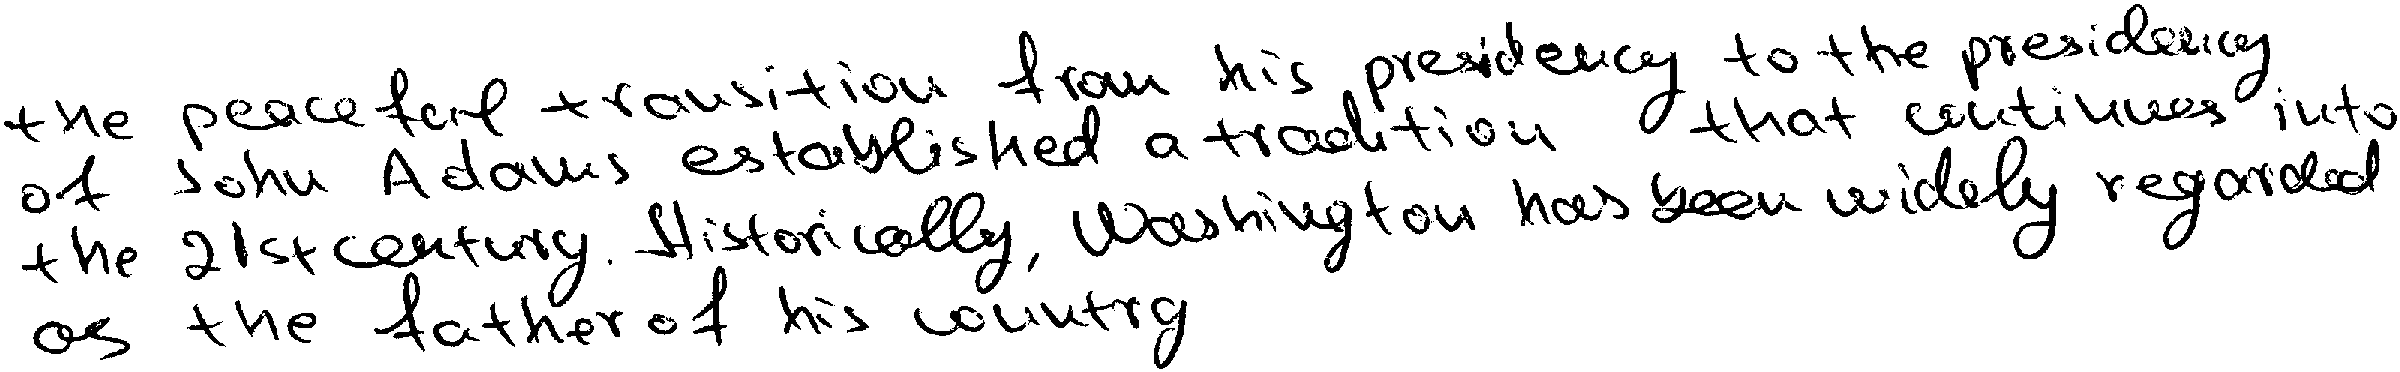 the peaceful transition from his presidency to the presidency
of John Adams established a tradition that continues into
the 21st century. Historically, Washington has been widely regarded
as the father of his country